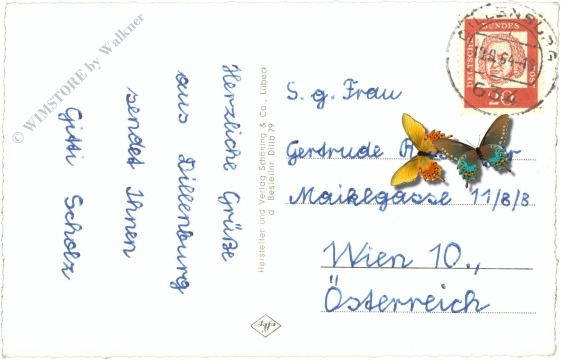 © WIMSTORE by Walkner
Herzliche Grüße
aus Dillenburg
sendet Ihnen
Gitti Scholz
Hersteller und Verlag Schöning & Co., Lübeck
Bestellnr. Dillb 79
DILLENBURG
634
DEUTSCHE BUNDESPOST
20
S. g. Frau
Gertrude
Maiklgasse 11/8/3
Wien 10.,
Österreich
Agfa